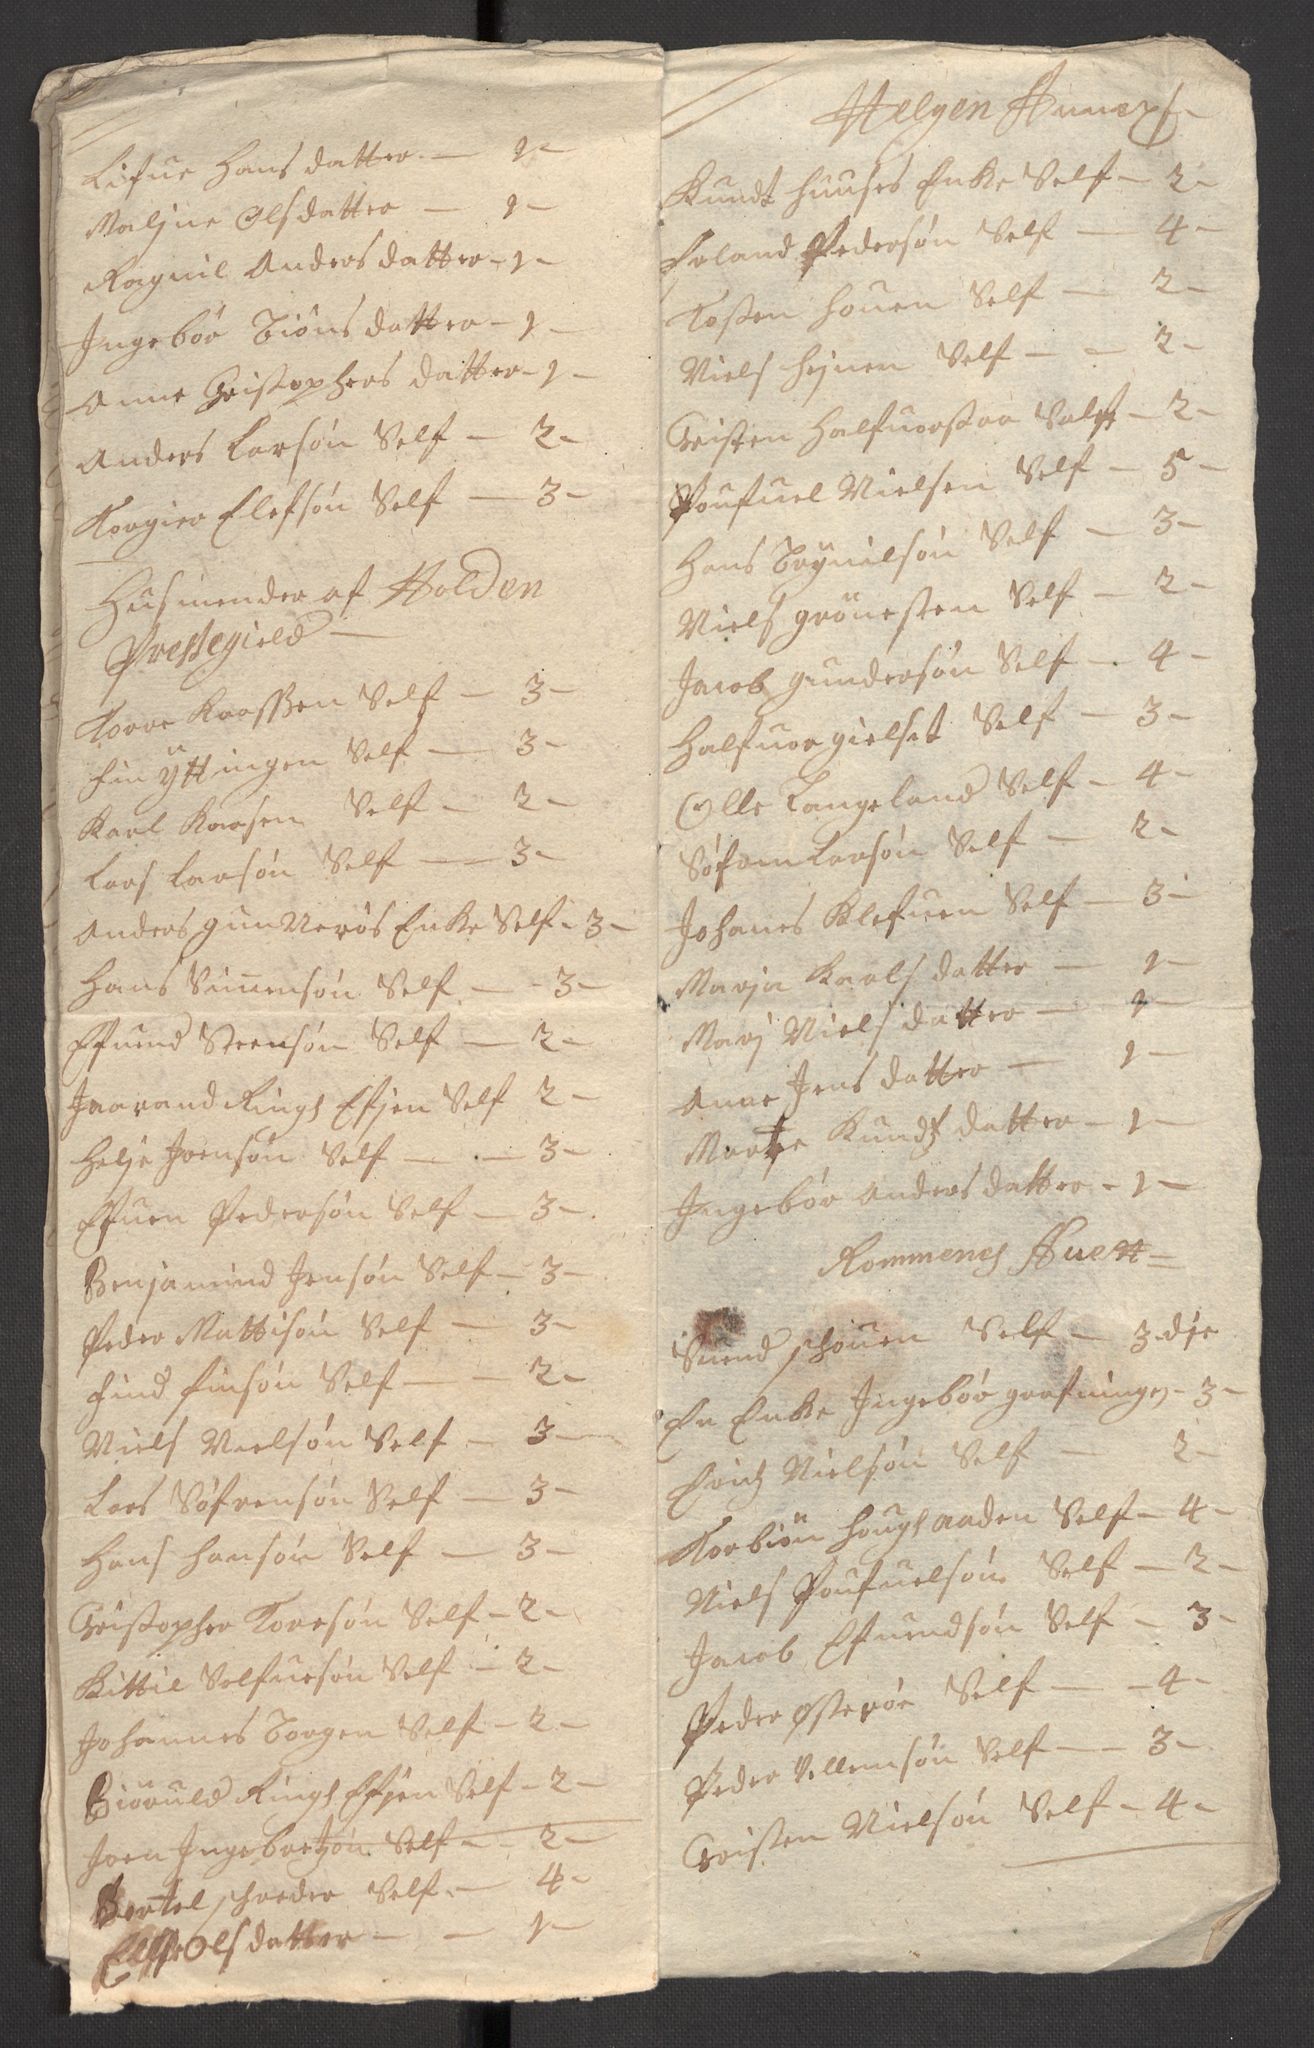 Lifue Hans datter — 1 —
Maljne Olsdatter — 1 —
Ragnil Anders datter — 1 —
Ingebör Biöns datter — 1 —
Anne Christophers datter — 1 —
Anders Larsön Self — 2 —
Torgier Elefsön Self — 3 —
Husmender af Holden
Prestegield —
Torre Self — 3 —
Fin Ÿttingen Self — 3 —
Karl Karsen Self — 2 —
Lars Larsön Self — 3 —
Anders gunnerös Enke Self — 3 —
Hans Simensön Self — 3 —
Efuend Steensön Self — 2 —
Jaarand Rings Efjen Self 2 —
Helje Joensön Self — 3 —
Efuen Pedersön Self — 3 —
Benjamind Jensön Self — 3 —
Peder Mattisön Self — 3 —
Find Finsön Self — 2 —
Niels Nielsön Self — 3 —
Lars Söfrensön Self — 3 —
Hans Hansön Self — 3 —
Christopher Toresön Self — 2 —
Kittil Self — 2 —
Johannes Borgen Self — 2 —
Rings Efjen Self — 2 —
Joen Ingebretzön Self — 2 —
Bertel schreder Self — 4 —
Olsdatter — 1 —
Helgen
Kundt huuses Enke Self — 2 —
Erland Pedersön Self — 4 —
Tosten houen Self — 2 —
Niels hejnen Self — 2 —
Christen Self — 2 —
Poufuel Nielsen Self — 5 —
Hans Self — 3 —
Niels grönesten Self — 2 —
Jacob gundersön Self — 4 —
Halfuor gielset Self — 3 —
Olle Langeland Self — 4 —
Söfren Larsön Self — 2 —
Johanes Klefuen Self — 3 —
Marja Karls datter — 1 —
Marj Niels datter — 1 —
Anne Jens datter — 1 —
Marte Kundz datter — 1 —
Ingebör Anders datter — 1 —
Rommenes
Suend schouen Self — 3 dje
En Enke Ingebör — 3 —
Erich Nielsön Self — 2 —
Torbiön Self — 4 —
Niels Poufuelsön Self — 2 —
Jacob Efuendsön Self — 3 —
Peder Österöe Self — 4 —
Peder Villemsön Self — 3 —
Christen Nielsön Self — 4 —